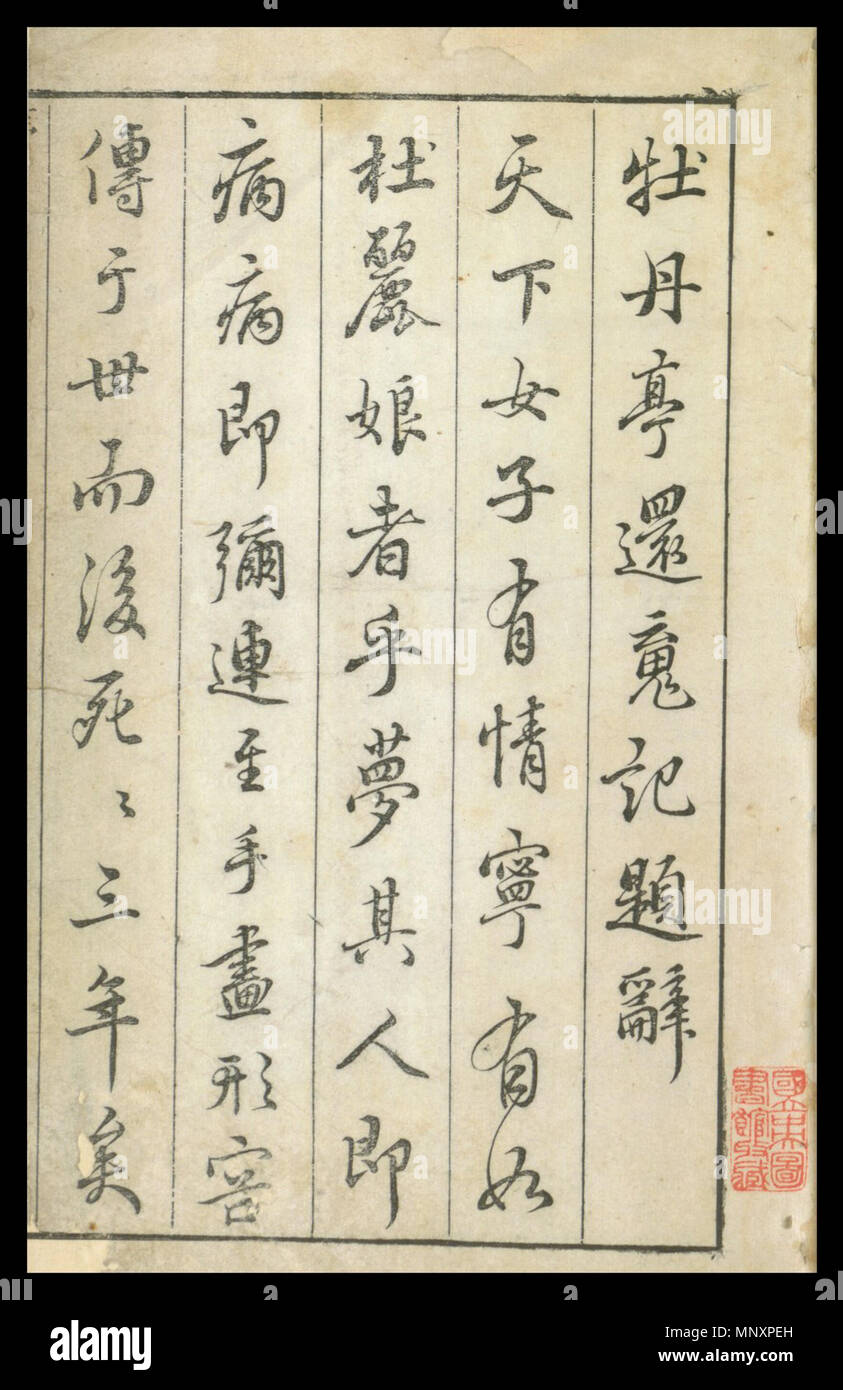 牡丹亭還䰟記題辭
天下女子有情寧有如
杜麗娘者乎夢其人即
病病即彌連至手畫形容
傳于世而後死〻三年矣
國立中央圖書館收藏
alamy
Image ID: MNXPEH
www.alamy.com